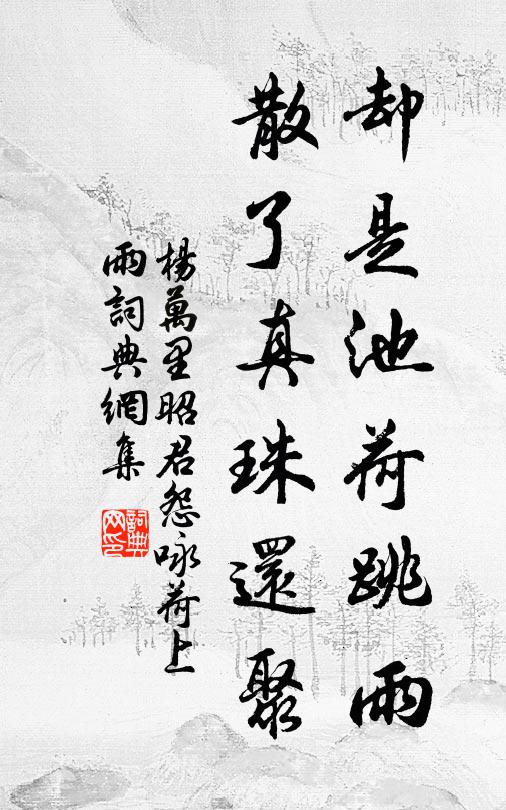 却是池荷跳雨
散了真珠還聚
楊萬里昭君怨咏荷上
雨詞典網集
詞典
网印